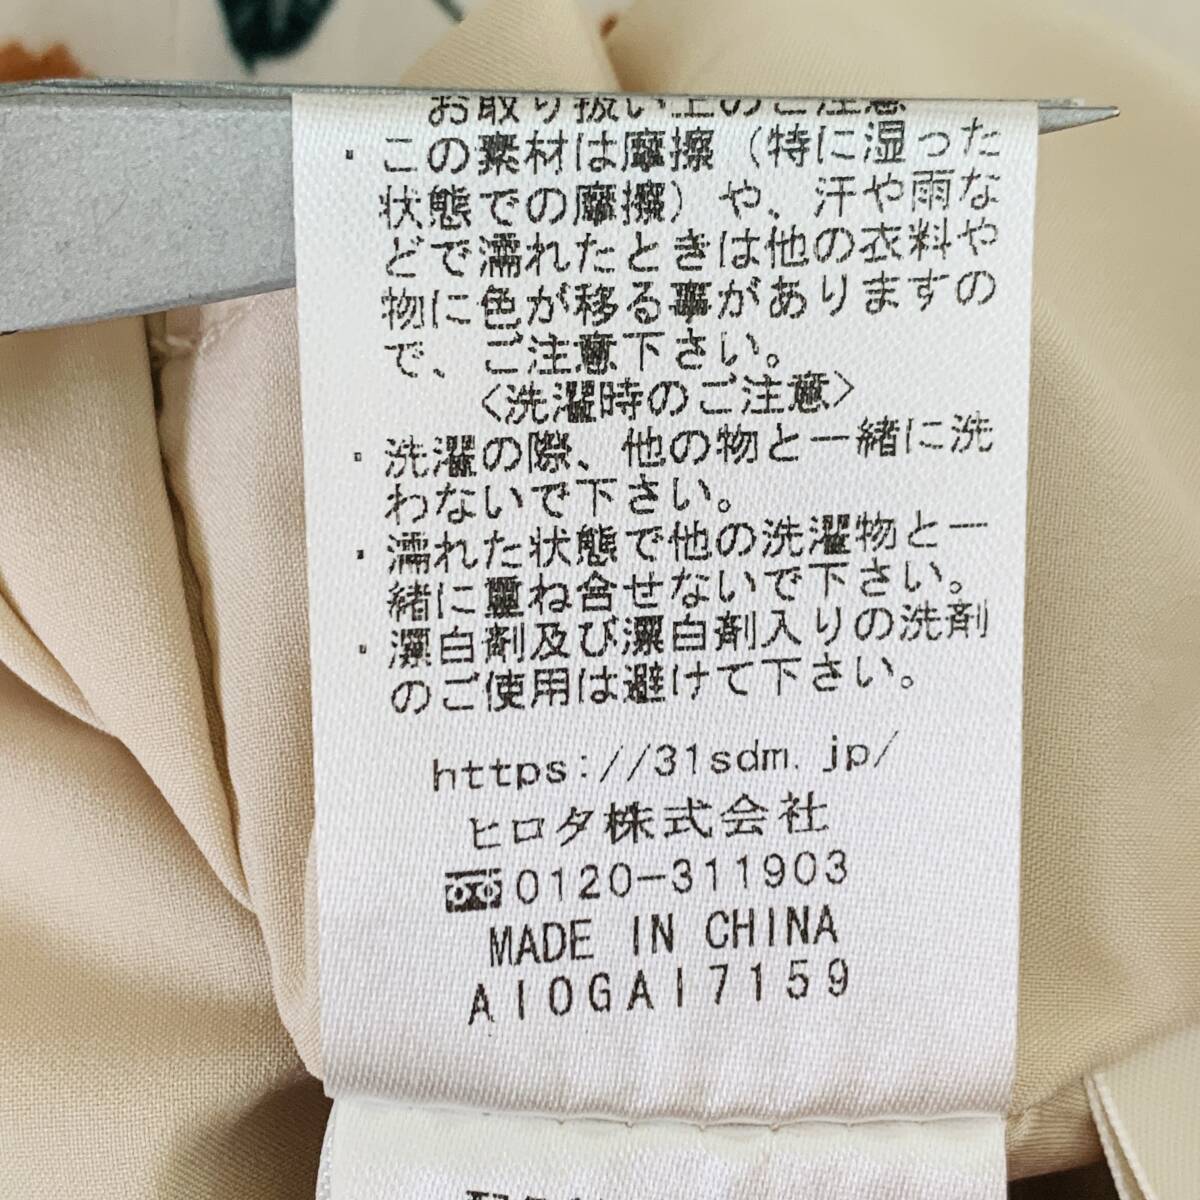 お取り扱い上のご注意
・この素材は摩擦（特に湿った
状態での摩擦）や、汗や雨な
どで濡れたときは他の衣料や
物に色が移る事がありますの
で、ご注意下さい。
<洗濯時のご注意>
・洗濯の際、他の物と一緒に洗
わないで下さい。
・濡れた状態で他の洗濯物と一
緒に重ね合せないで下さい。
・漂白剤及び漂白剤入りの洗剤
のご使用は避けて下さい。
https://31sdm.jp/
ヒロタ株式会社
0120-311903
MADE IN CHINA
A10GA17159